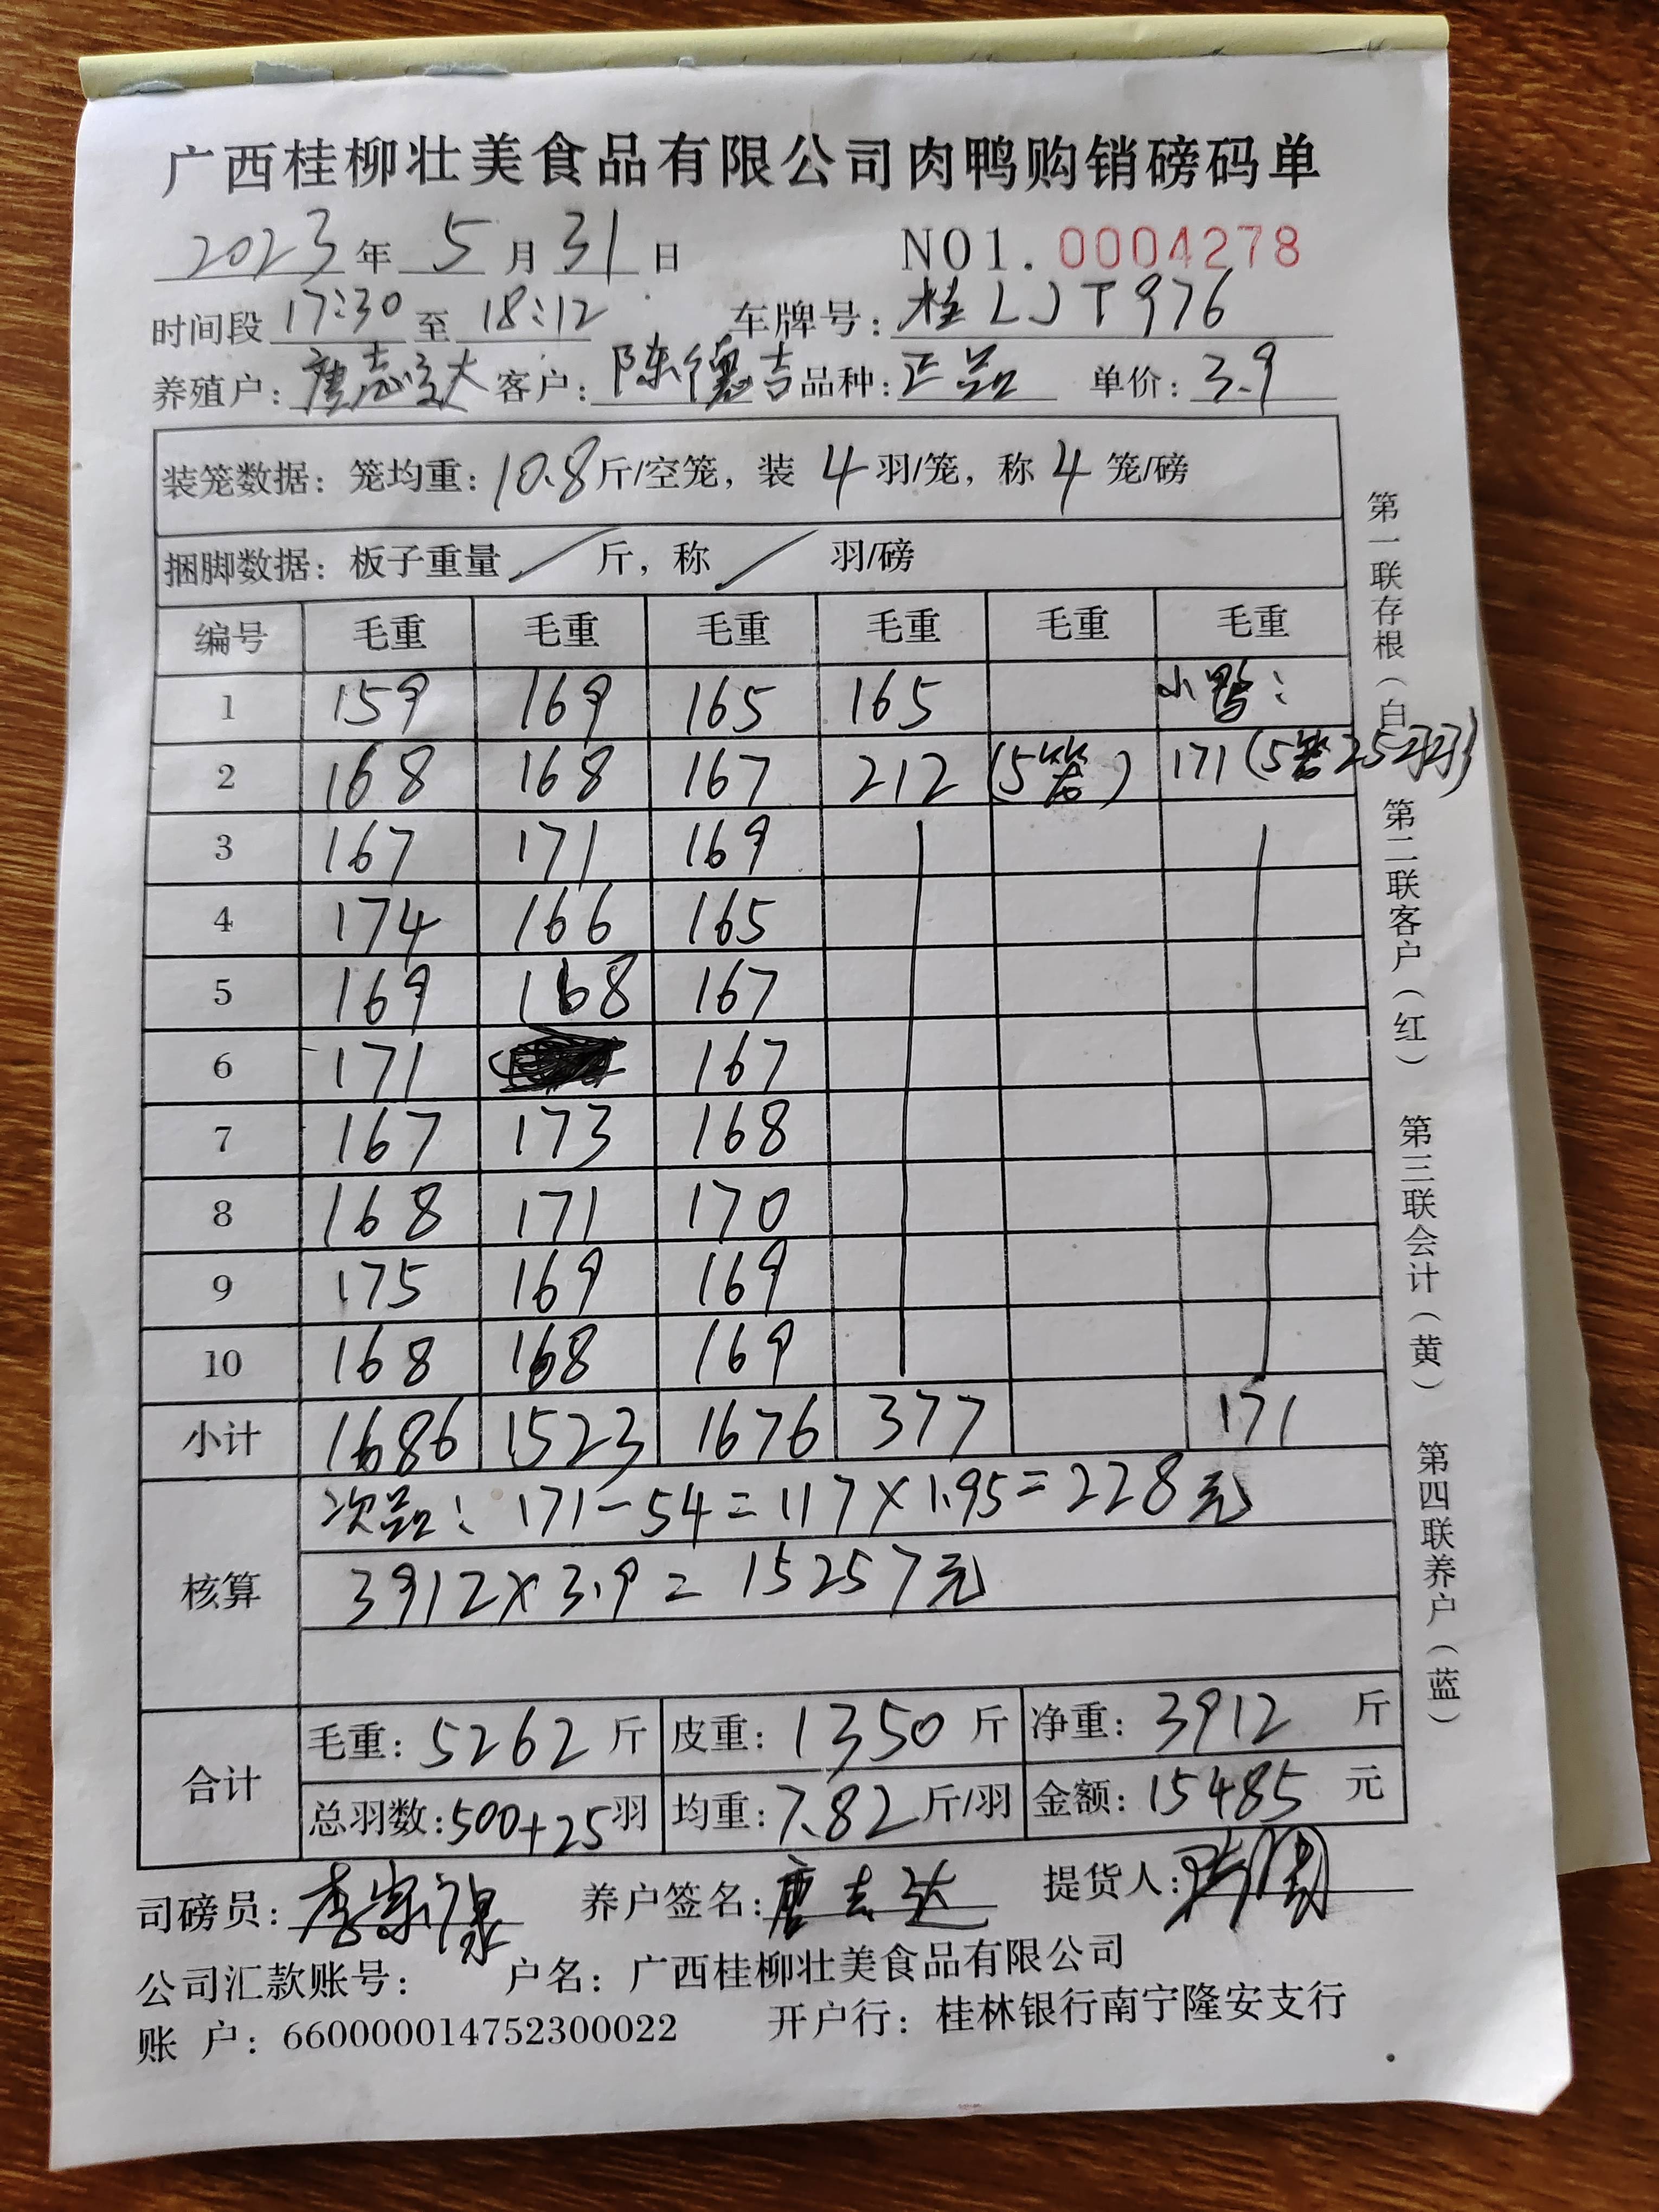 广西桂柳壮美食品有限公司肉鸭购销磅码单
2023年 5 月 31 日 NO1. 0004278
时间段 17:30 至 18:12 车牌号: 桂LJT976
养殖户: 唐志达 客户: 陈德吉 品种: 正品 单价: 3.9
装笼数据: 笼均重: 10.8 斤/空笼, 装 4 羽/笼, 称 4 笼/磅
捆脚数据: 板子重量 / 斤, 称 / 羽/磅
编号 毛重 毛重 毛重 毛重 毛重 毛重
1 159 169 165 165 小鸭:
2 168 168 167 212 (5笼) 171 (5笼25羽)
3 167 171 169
4 174 166 165
5 169 168 167
6 171 167
7 167 173 168
8 168 171 170
9 175 169 169
10 168 168 169
小计 1686 1523 1676 377 171
核算
次品: 171-54=117×1.95=228元
3912×3.9=15257元
合计
毛重: 5262 斤 皮重: 1350 斤 净重: 3912 斤
总羽数: 500+25 羽 均重: 7.82 斤/羽 金额: 15485 元
司磅员: 李 养户签名: 唐志达 提货人:
公司汇款账号: 户名: 广西桂柳壮美食品有限公司
账 户: 660000014752300022 开户行: 桂林银行南宁隆安支行
第一联存根(白) 第二联客户(红) 第三联会计(黄) 第四联养户(蓝)